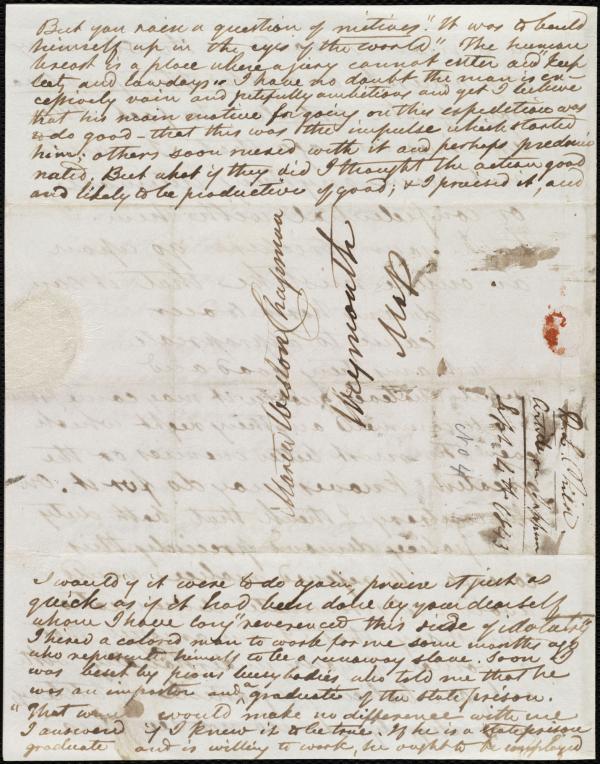 But you raise a question of motives. "It was to build
himself up in the eyes of the world." The human
breast is a place where a jury cannot enter and keep
leets and lawdays. I have no doubt the man is ex-
cessively vain and pitifully ambitious and yet I believe
that his main motive for going on this expedition was
to do good - that this was the impulse which started
him; others soon mixed with it and perhaps predomi
nated. But what if they did I thought the action good
and likely to be productive of good; & I praised it, and
Maria Weston Chapman
Weymouth
Ms
No 4
Sept. 4th 1843
I would if it were to do again, praise it just as
quick as if it had been done by your dear self
whom I have long reverenced this side of idolatry
I hired a colored man to work for me some months ago
who represents himself to be a runaway slave. Soon I
was beset by pious busybodies who told me that he
was an impostor and a graduate of the state prison.
"That would make no difference with me
I answered if I knew it to be true. If he is a state prison
graduate and is willing to work, he ought to be employed